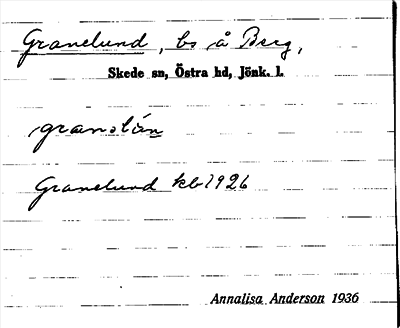 Granelund, bs å Berg,
Skede sn, Östra hd, Jönk. l.
Granelund kb 1926
Annalisa Anderson 1936